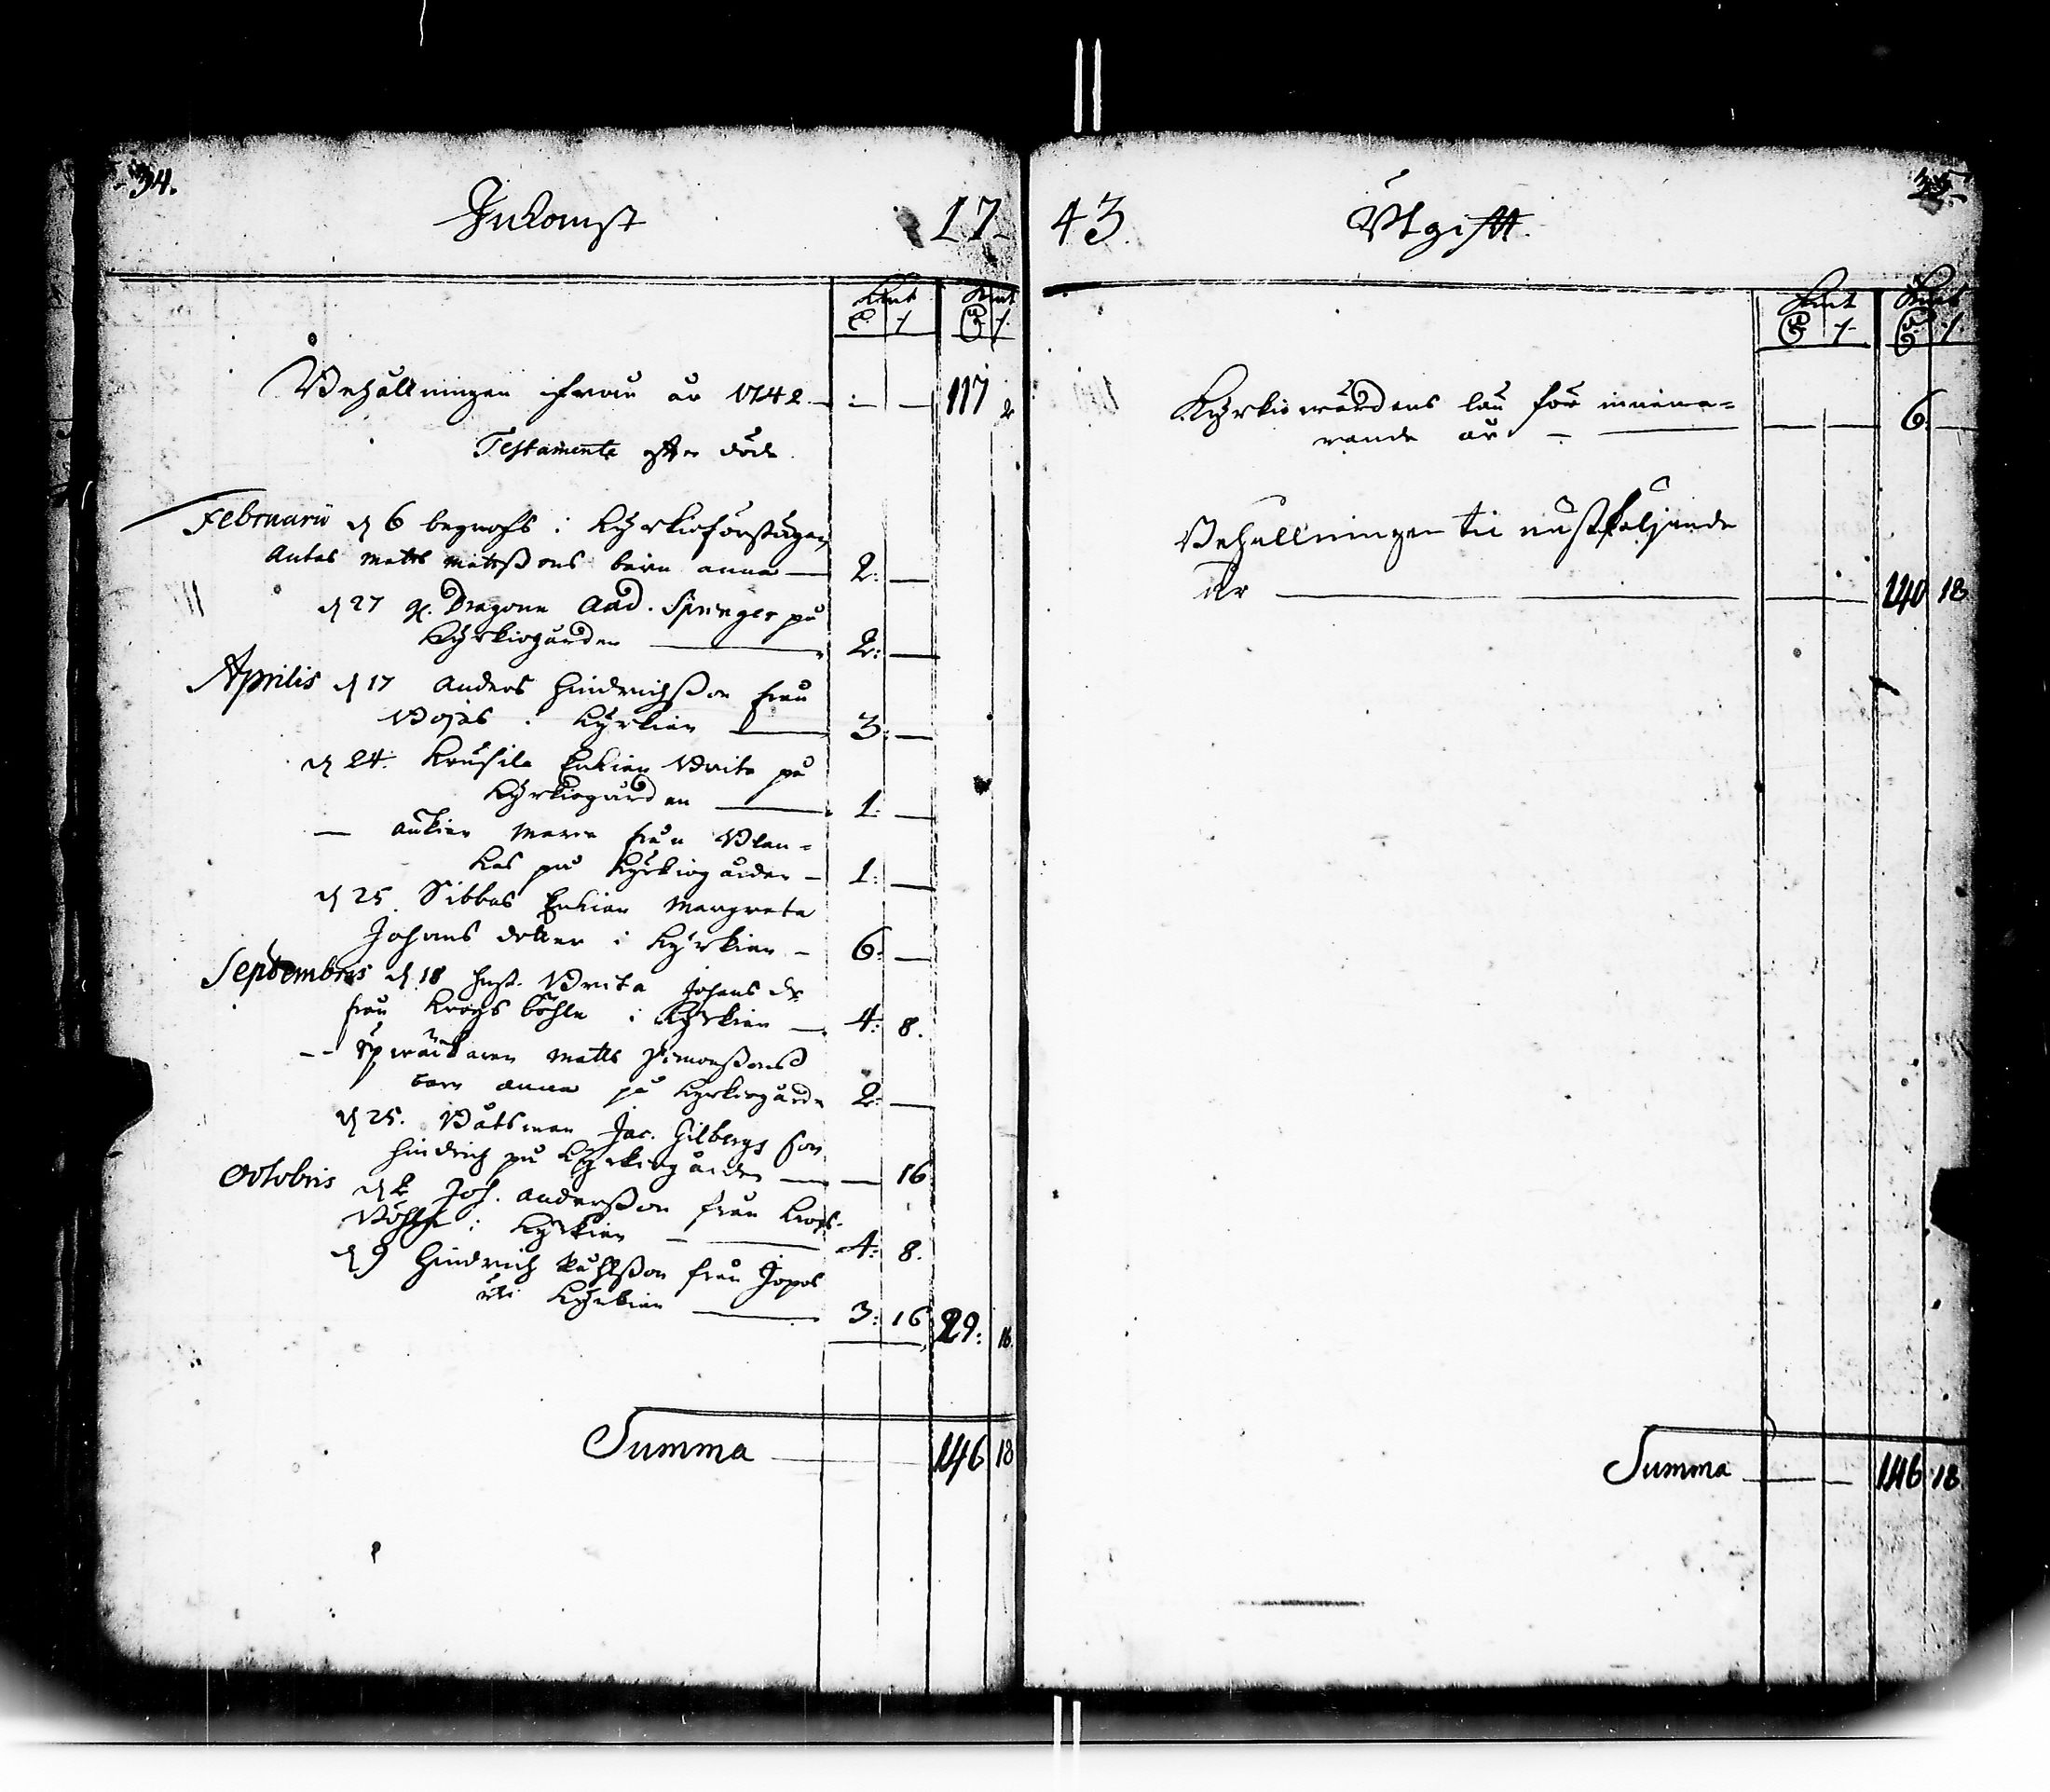 34.
Inkomst 17
Kmt Kmt
Behållningen ifrån år 1742 — : — 117 2
Testamente efter döde.
Februarii d 6 begrofs i Kyrkioförstugan
Antas Matts Matsßons barn Anna — 2: —
d 27 Dragoun And. Springer på
Kyrkiogården — 2: —
Aprilis d 17 Anders Hindrichßon från
i Kyrkian — 3: —
d 24. Enkian Brita på
Kyrkiogården — 1: —
— Änkian Maria från
på Kyrkiogården — 1: —
d 25. Sibbas Enkian Margreta
Johans dotter i Kyrkian — 6: —
Septembris d 18 hust. Brita Johans dr
från Krogsböhle i Kyrkian — 4: 8.
— Matts Simonßons
barn Anna på Kyrkiogårdn 2: —
d 25. Båtsman Jac. Gilbergs son
Hindrich på Kyrkiogården — — 16
Octobris d 2 Joh. Anderßon från Krogs-
Böhle i Kyrkian — 4: 8.
d 9 Hindrich från
uti Kyrkian — 3: 16 29: 16.
Summa — 146 18
35.
43. Utgift.
Kmt Kmt
Kyrkiowärdens lön för innewa-
rande år — — 6. —
Behållningen til näst följande
år — — 140 18
Summa — — 146 18